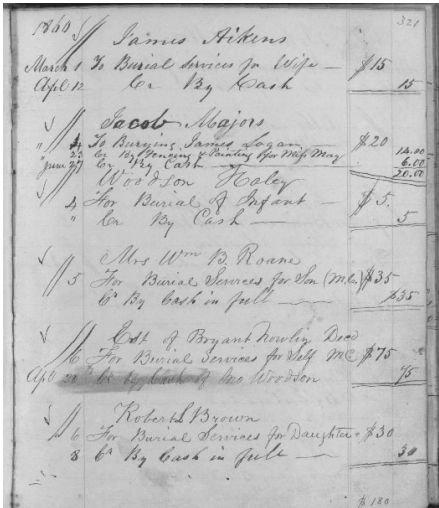 1860 321
James Aikens
March 1 To Burial Services for Wife — $15
Apl 12 Cr By Cash 15
Jacob Majors
" 4 To Burying James Logan $20
" 23 Cr By Fencing & Painting for Miss May 14.00
June 27 Cr By Cash 6.00
20.00
Woodson Haley
4 For Burial of Infant — $5.
" Cr By Cash — 5
Mrs Wm B. Roane
5 For Burial Services for Son (M.C.) $35
Cr By Cash in full — $35
Est of Bryant Nowlin Decd
6 For Burial Services for Self M.C. $75
Apl 20th Cr by Cash of Woodson 75
Robert S Brown
6 For Burial Services for Daughter - $30
8 Cr By Cash in full — 30
$180